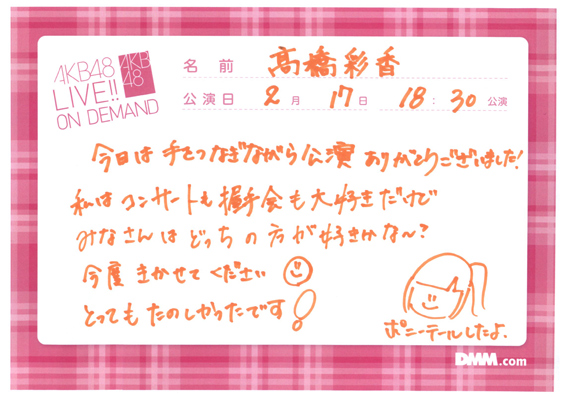 AKB48
LIVE!!
ON DEMAND
AKB
48
名前 高橋彩香
公演日 2月 17日 18:30公演
今日は手をつなぎながら公演ありがとうございました!
私はコンサートも握手会も大好きだけど
みなさんはどっちの方が好きかな〜?
今度きかせてください
とってもたのしかったです!
ポニーテールしたよ.
DMM.com